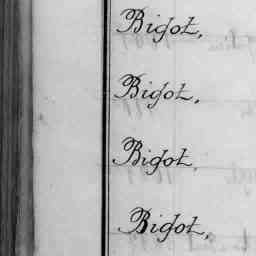 Bigot,
Bigot,
Bigot
Bigot,